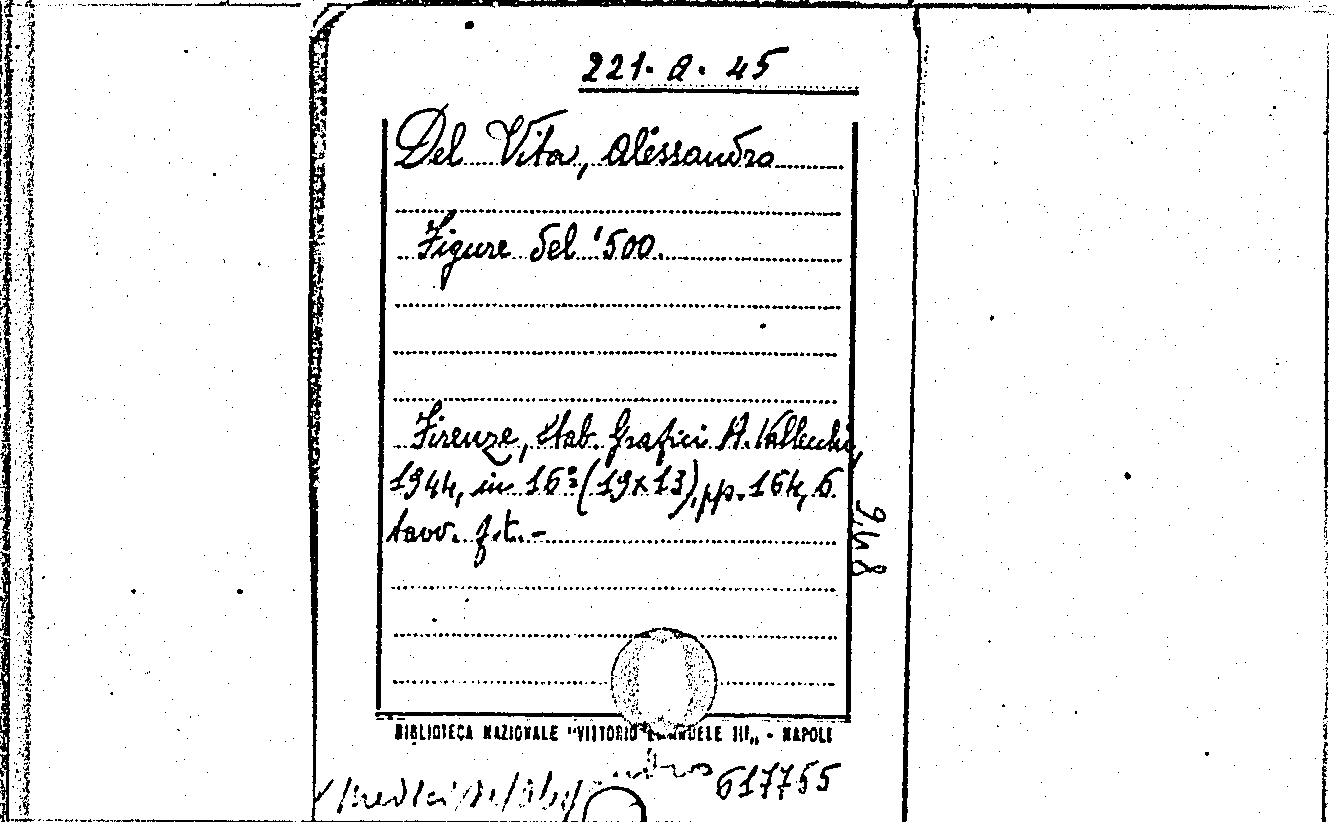 221. A. 45
Del Vita, Alessandro
Figure del '500.
Firenze, Stab. Grafici A. Vallecchi,
1944, in 16º (19x13), pp. 164, 6
tavv. f.t. -
948
BIBLIOTECA NAZIONALE "VITTORIO EMANUELE III„ - NAPOLI
617755